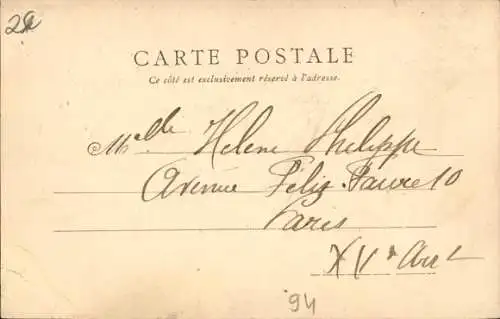 2a
CARTE POSTALE
Ce côté est exclusivement réservé à l'adresse.
Melle Helene Philippe
Avenue Félix-Faure 10
Paris
XVe Arrt
94